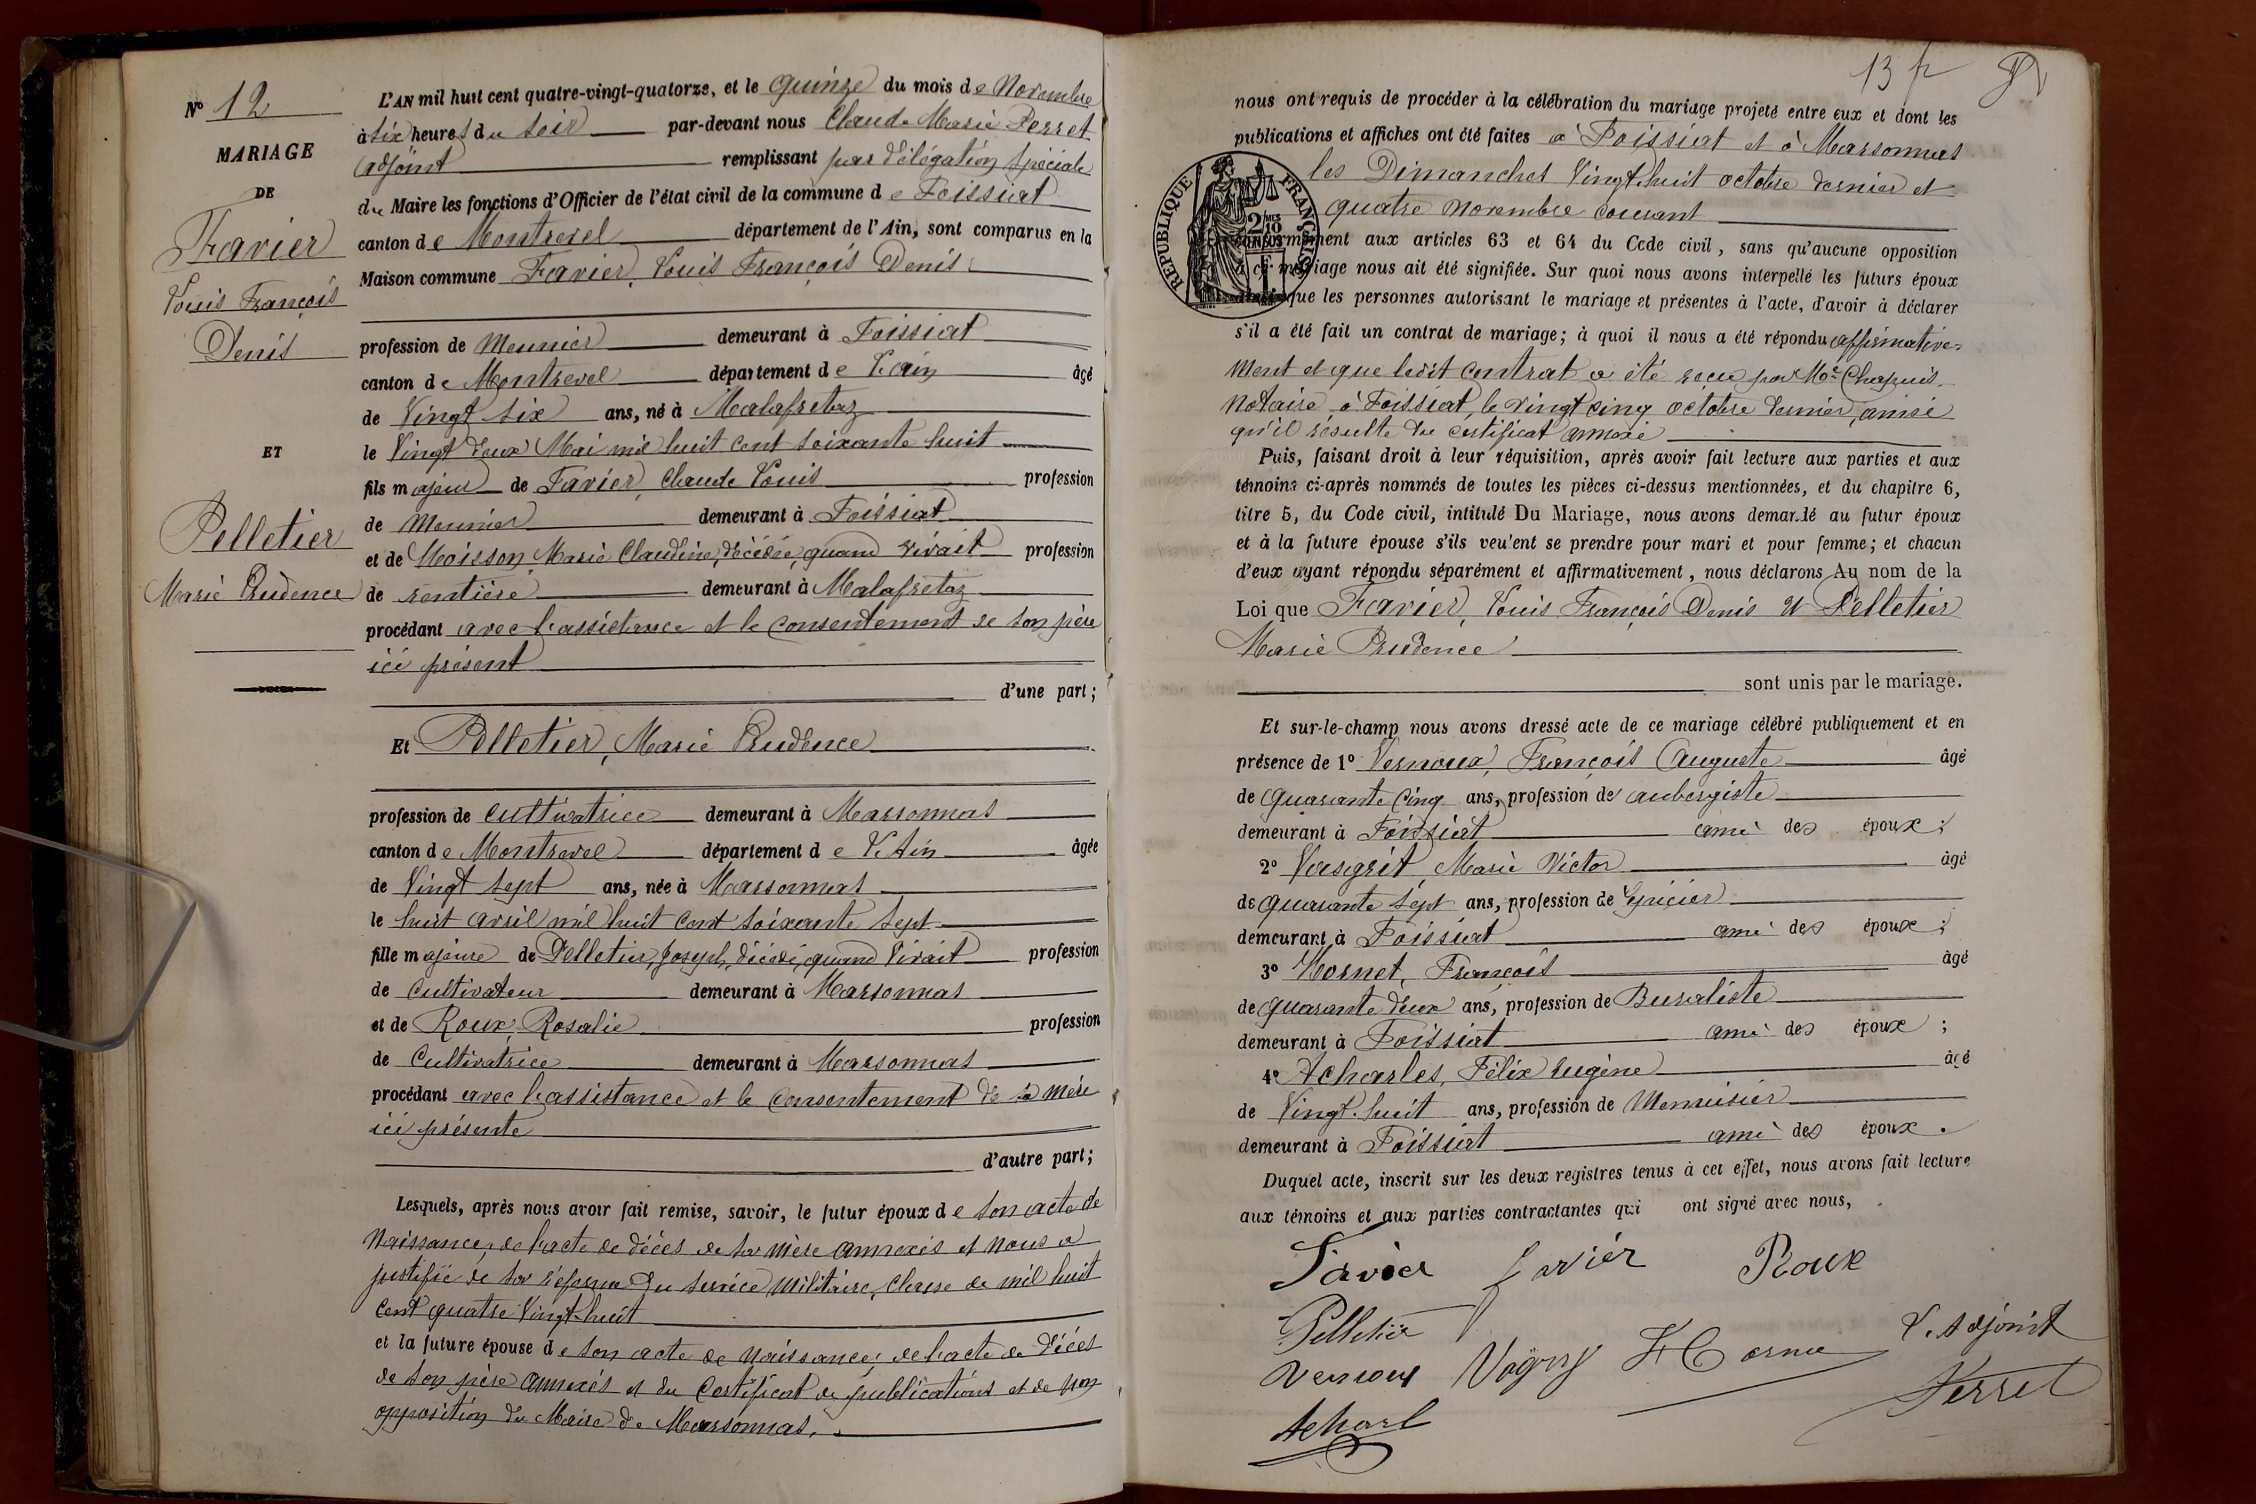 N° 12
MARIAGE
DE
Favier
Louis François
Denis
ET
Pelletier
Marie Prudence
L'AN mil huit cent quatre-vingt-quatorze, et le quinze du mois de Novembre
à six heures du soir par-devant nous Claude Marie Perret
adjoint remplissant par délégation spéciale
du Maire les fonctions d'Officier de l'état civil de la commune de Foissiat
canton de Montrevel département de l'Ain, sont comparus en la
Maison commune Favier, Louis François Denis
profession de Meunier demeurant à Foissiat
canton de Montrevel département de L'ain âgé
de Vingt six ans, né à Malafretaz
le Vingt deux Mai mil huit cent soixante huit
fils majeur de Favier, Claude Louis profession
de Meunier demeurant à Foissiat
et de Moisson, Marie Claudine, décédée, quand vivait profession
de rentière demeurant à Malafretaz
procédant avec l'assistance et le consentement de son père
ici présent
d'une part;
Et Pelletier, Marie Prudence
profession de cultivatrice demeurant à Marsonnas
canton de Montrevel département de L'Ain âgée
de Vingt sept ans, née à Marsonnas
le huit avril mil huit cent soixante sept
fille majeure de Pelletier Joseph, décédé, quand vivait profession
de Cultivateur demeurant à Marsonnas
et de Roux, Rosalie profession
de Cultivatrice demeurant à Marsonnas
procédant avec l'assistance et le consentement de sa mère
ici présente
d'autre part;
Lesquels, après nous avoir fait remise, savoir, le futur époux de son acte de
Naissance, de l'acte de décès de sa mère annexés et nous a
justifié de sa réforme du service militaire, classe de mil huit
cent quatre vingt-huit
et la future épouse de son acte de naissance; de l'acte de décès
de son père annexés et du certificat de publications et de non
opposition du Maire de Marsonnas.
13
nous ont requis de procéder à la célébration du mariage projeté entre eux et dont les
publications et affiches ont été faites à Foissiat et à Marsonnas
les Dimanches Vingt-huit octobre dernier et
quatre novembre courant
conformément aux articles 63 et 64 du Code civil, sans qu'aucune opposition
à ce mariage nous ait été signifiée. Sur quoi nous avons interpellé les futurs époux
ainsi que les personnes autorisant le mariage et présentes à l'acte, d'avoir à déclarer
s'il a été fait un contrat de mariage; à quoi il nous a été répondu affirmative-
ment et que ledit contrat a été reçu par Me Chapuis
Notaire à Foissiat, le vingt cinq octobre dernier, ainsi
qu'il résulte du certificat annexé
REPUBLIQUE FRANÇAISE
Puis, faisant droit à leur réquisition, après avoir fait lecture aux parties et aux
témoins ci-après nommés de toutes les pièces ci-dessus mentionnées, et du chapitre 6,
titre 5, du Code civil, intitulé Du Mariage, nous avons demandé au futur époux
et à la future épouse s'ils veulent se prendre pour mari et pour femme; et chacun
d'eux ayant répondu séparément et affirmativement, nous déclarons Au nom de la
Loi que Favier, Louis François Denis et Pelletier
Marie Prudence
sont unis par le mariage.
Et sur-le-champ nous avons dressé acte de ce mariage célébré publiquement et en
présence de 1° Vernoux, François Auguste âgé
de quarante cinq ans, profession de aubergiste
demeurant à Foissiat ami des époux;
2° Marie Victor âgé
de quarante sept ans, profession de Epicier
demeurant à Foissiat ami des époux;
3° Hornet, François âgé
de quarante deux ans, profession de Buraliste
demeurant à Foissiat ami des époux;
4° Acharles, Félix Eugène âgé
de Vingt-huit ans, profession de Menuisier
demeurant à Foissiat ami des époux.
Duquel acte, inscrit sur les deux registres tenus à cet effet, nous avons fait lecture
aux témoins et aux parties contractantes qui ont signé avec nous,
Favier Favier Roux
Pelletier L'Adjoint
Vernoux Perret